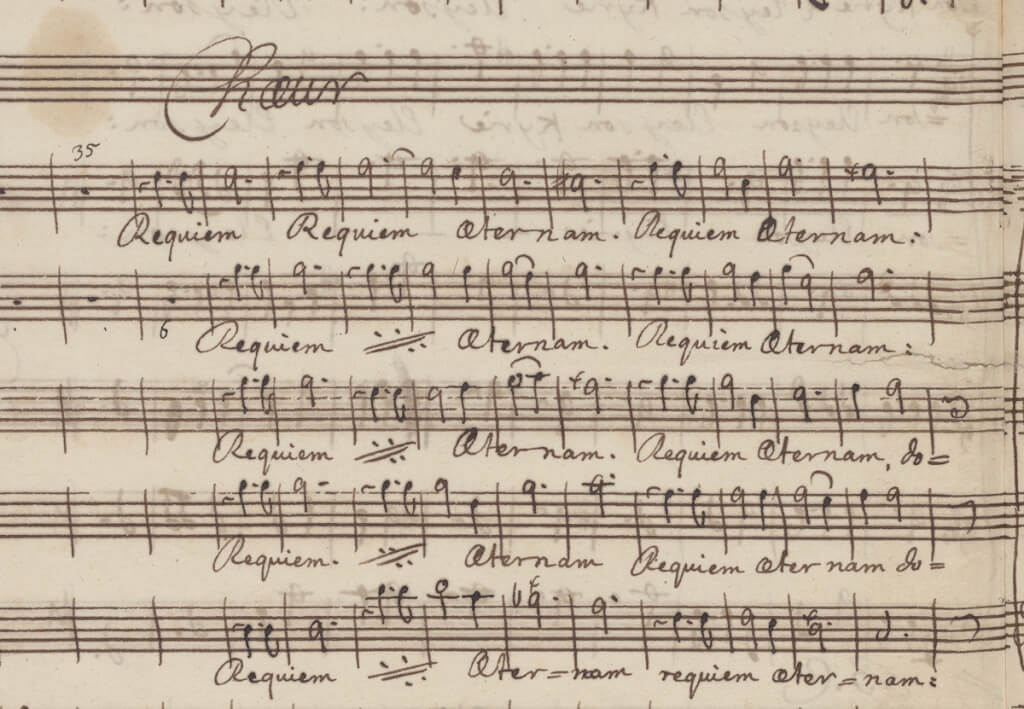 Chœur
35
Requiem Requiem Æternam. Requiem Æternam:
6
Requiem Æternam. Requiem Æternam:
Requiem Æternam. Requiem Æternam, do=
Requiem. Æternam Requiem æternam do=
Requiem Æter=nam requiem æter=nam: